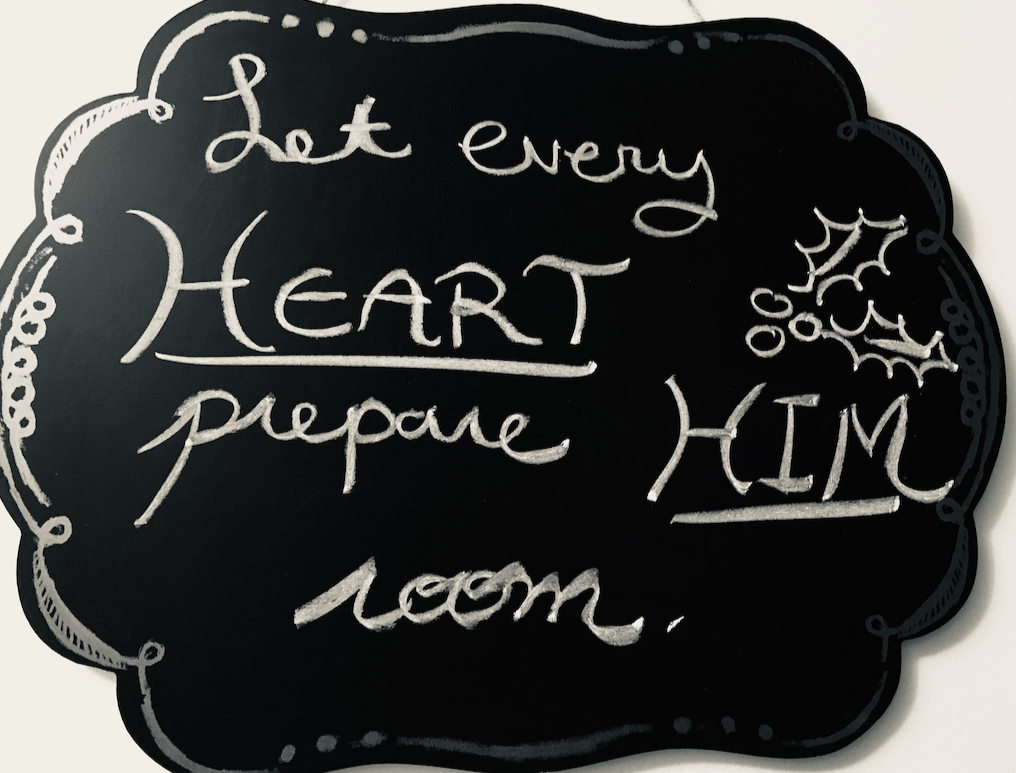 Let every
HEART
prepare HIM
room.